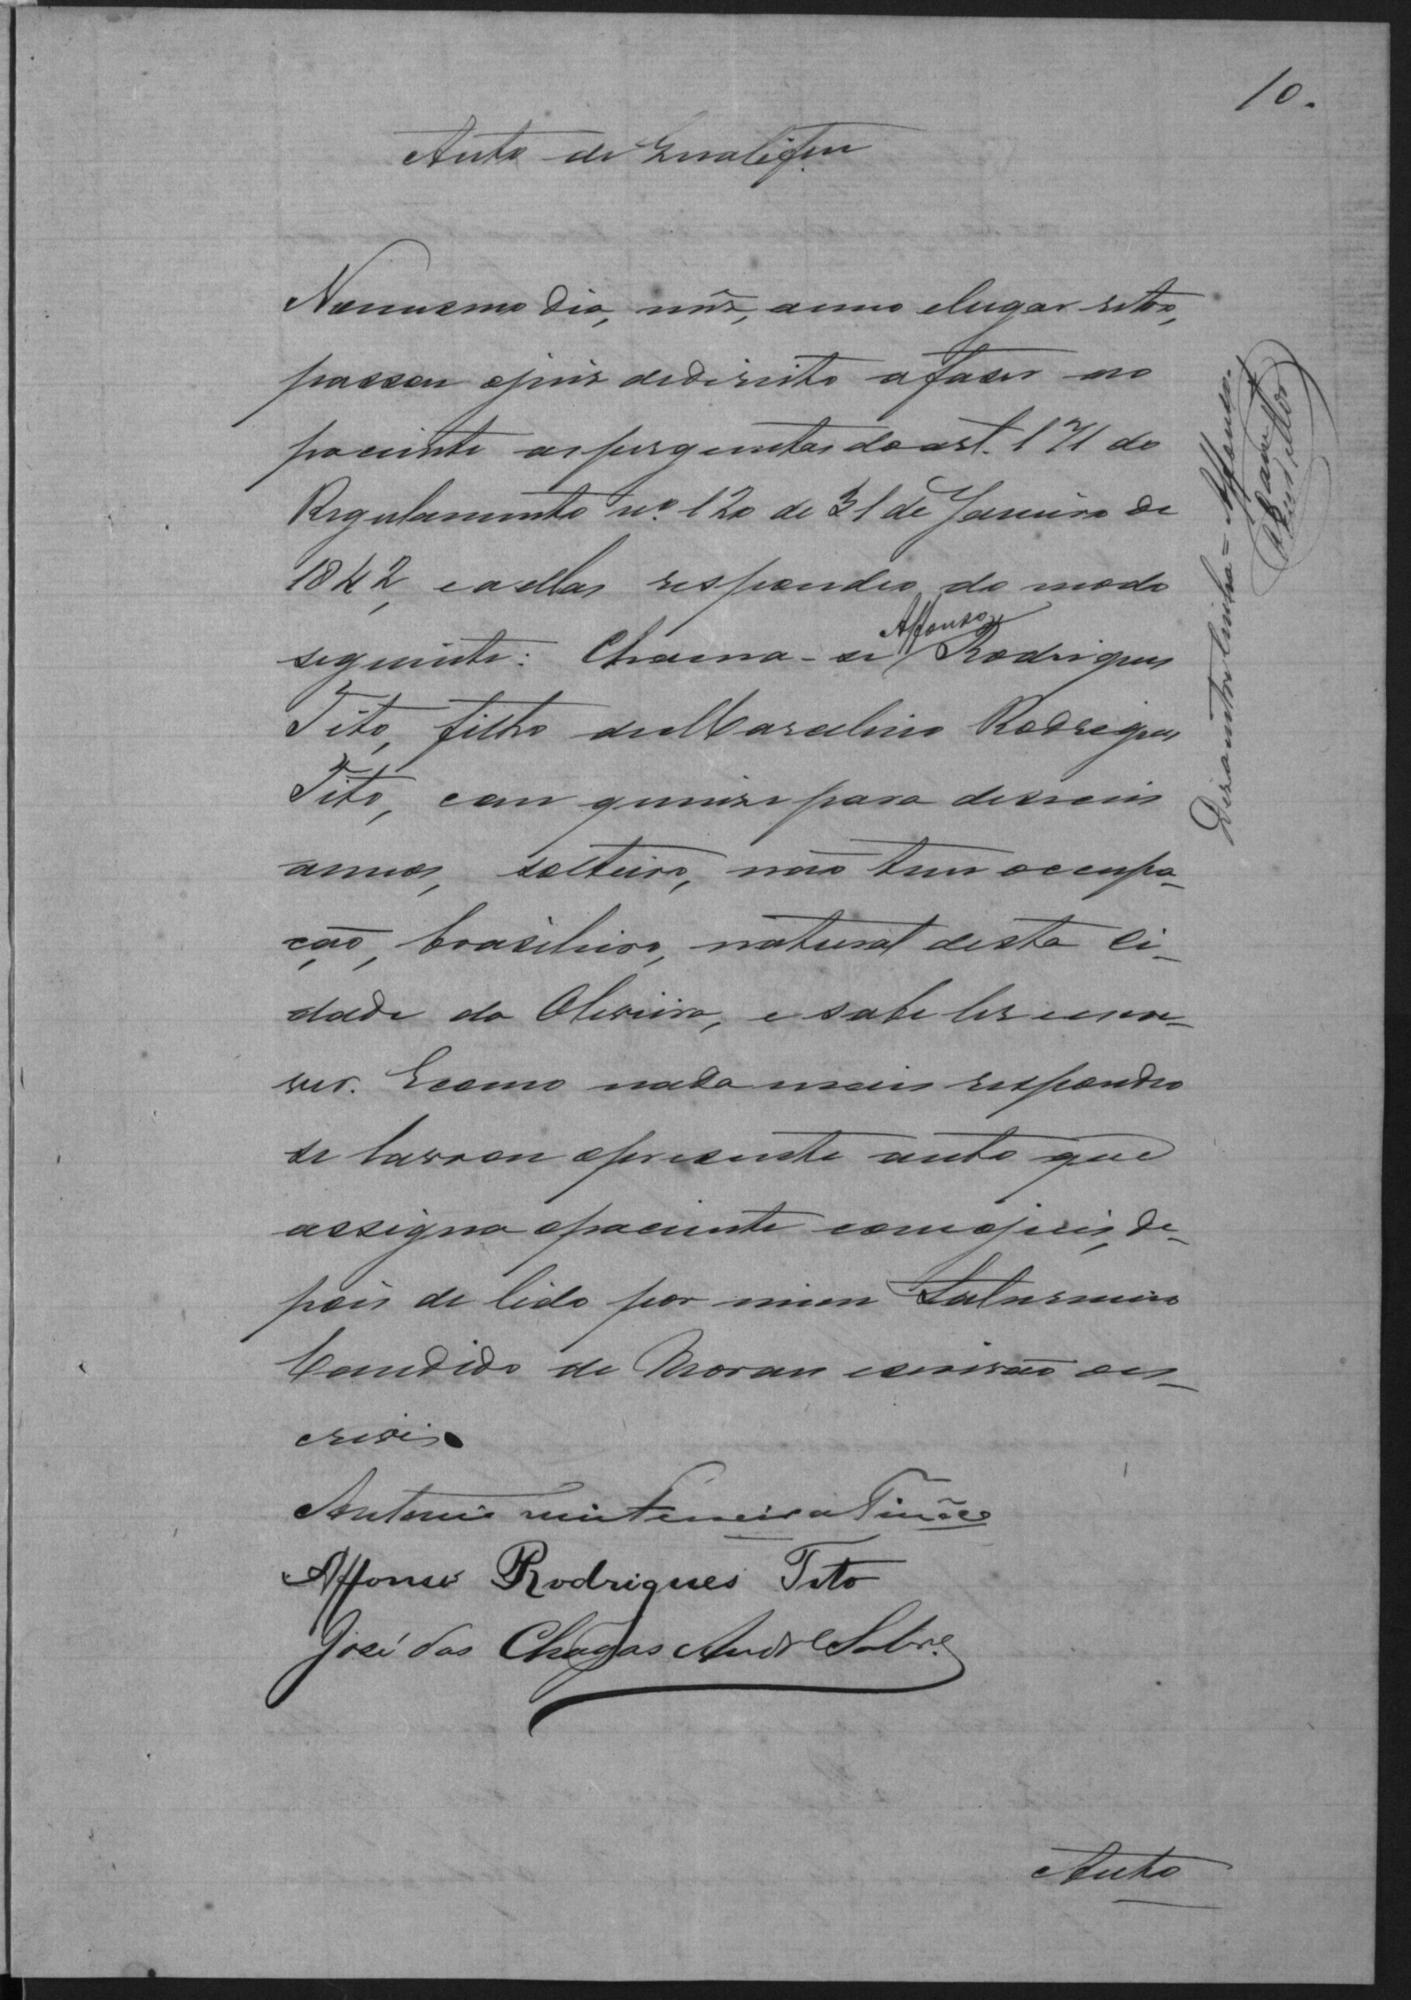 10.
Auto de Qualifam
No mesmo dia, mês, anno e lugar retro,
passou o juiz de direito a faser ao
paciente as perguntas do art. 171 do
Regulamento nº 120 de 31 de Janeiro de
1842, e a ellas respondeo do modo
seguinte: Chama-se Affonso Rodrigues
Tito, filho de Marcelino Rodrigues
Tito, com quinze para deseseis
annos, solteiro, não tem occupa-
ção, brasileiro, natural desta ci-
dade da Oliveira, e sabe ler e escre-
ver. E como nada mais respondeo
se lavrou o presente auto que
assigna o paciente com o juiz, de-
pois de lido por mim
Candido de Moraes escrivão o es-
crevi.
Antonio
Affonso Rodrigues Tito
José das Chagas Andre Sobr.º
Auto
Disa entrelinha = Affonso.